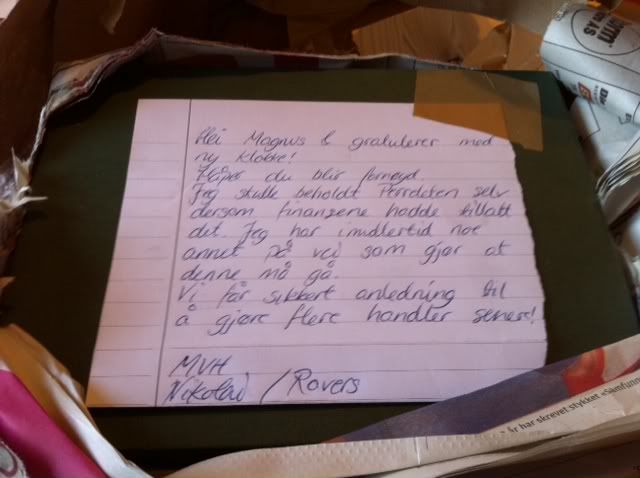 Hei Magnus & gratulerer med
ny klokke!
Håper du blir fornøyd.
Jeg skulle beholdt Perrdeten selv
dersom finansene hadde tillatt
det. Jeg har imidlertid noe
annet på vei som gjør at
denne må gå.
Vi får sikkert anledning til
å gjøre flere handler senere!
MVH
Nikolai / Rovers
år har skrevet stykket «Samfunn